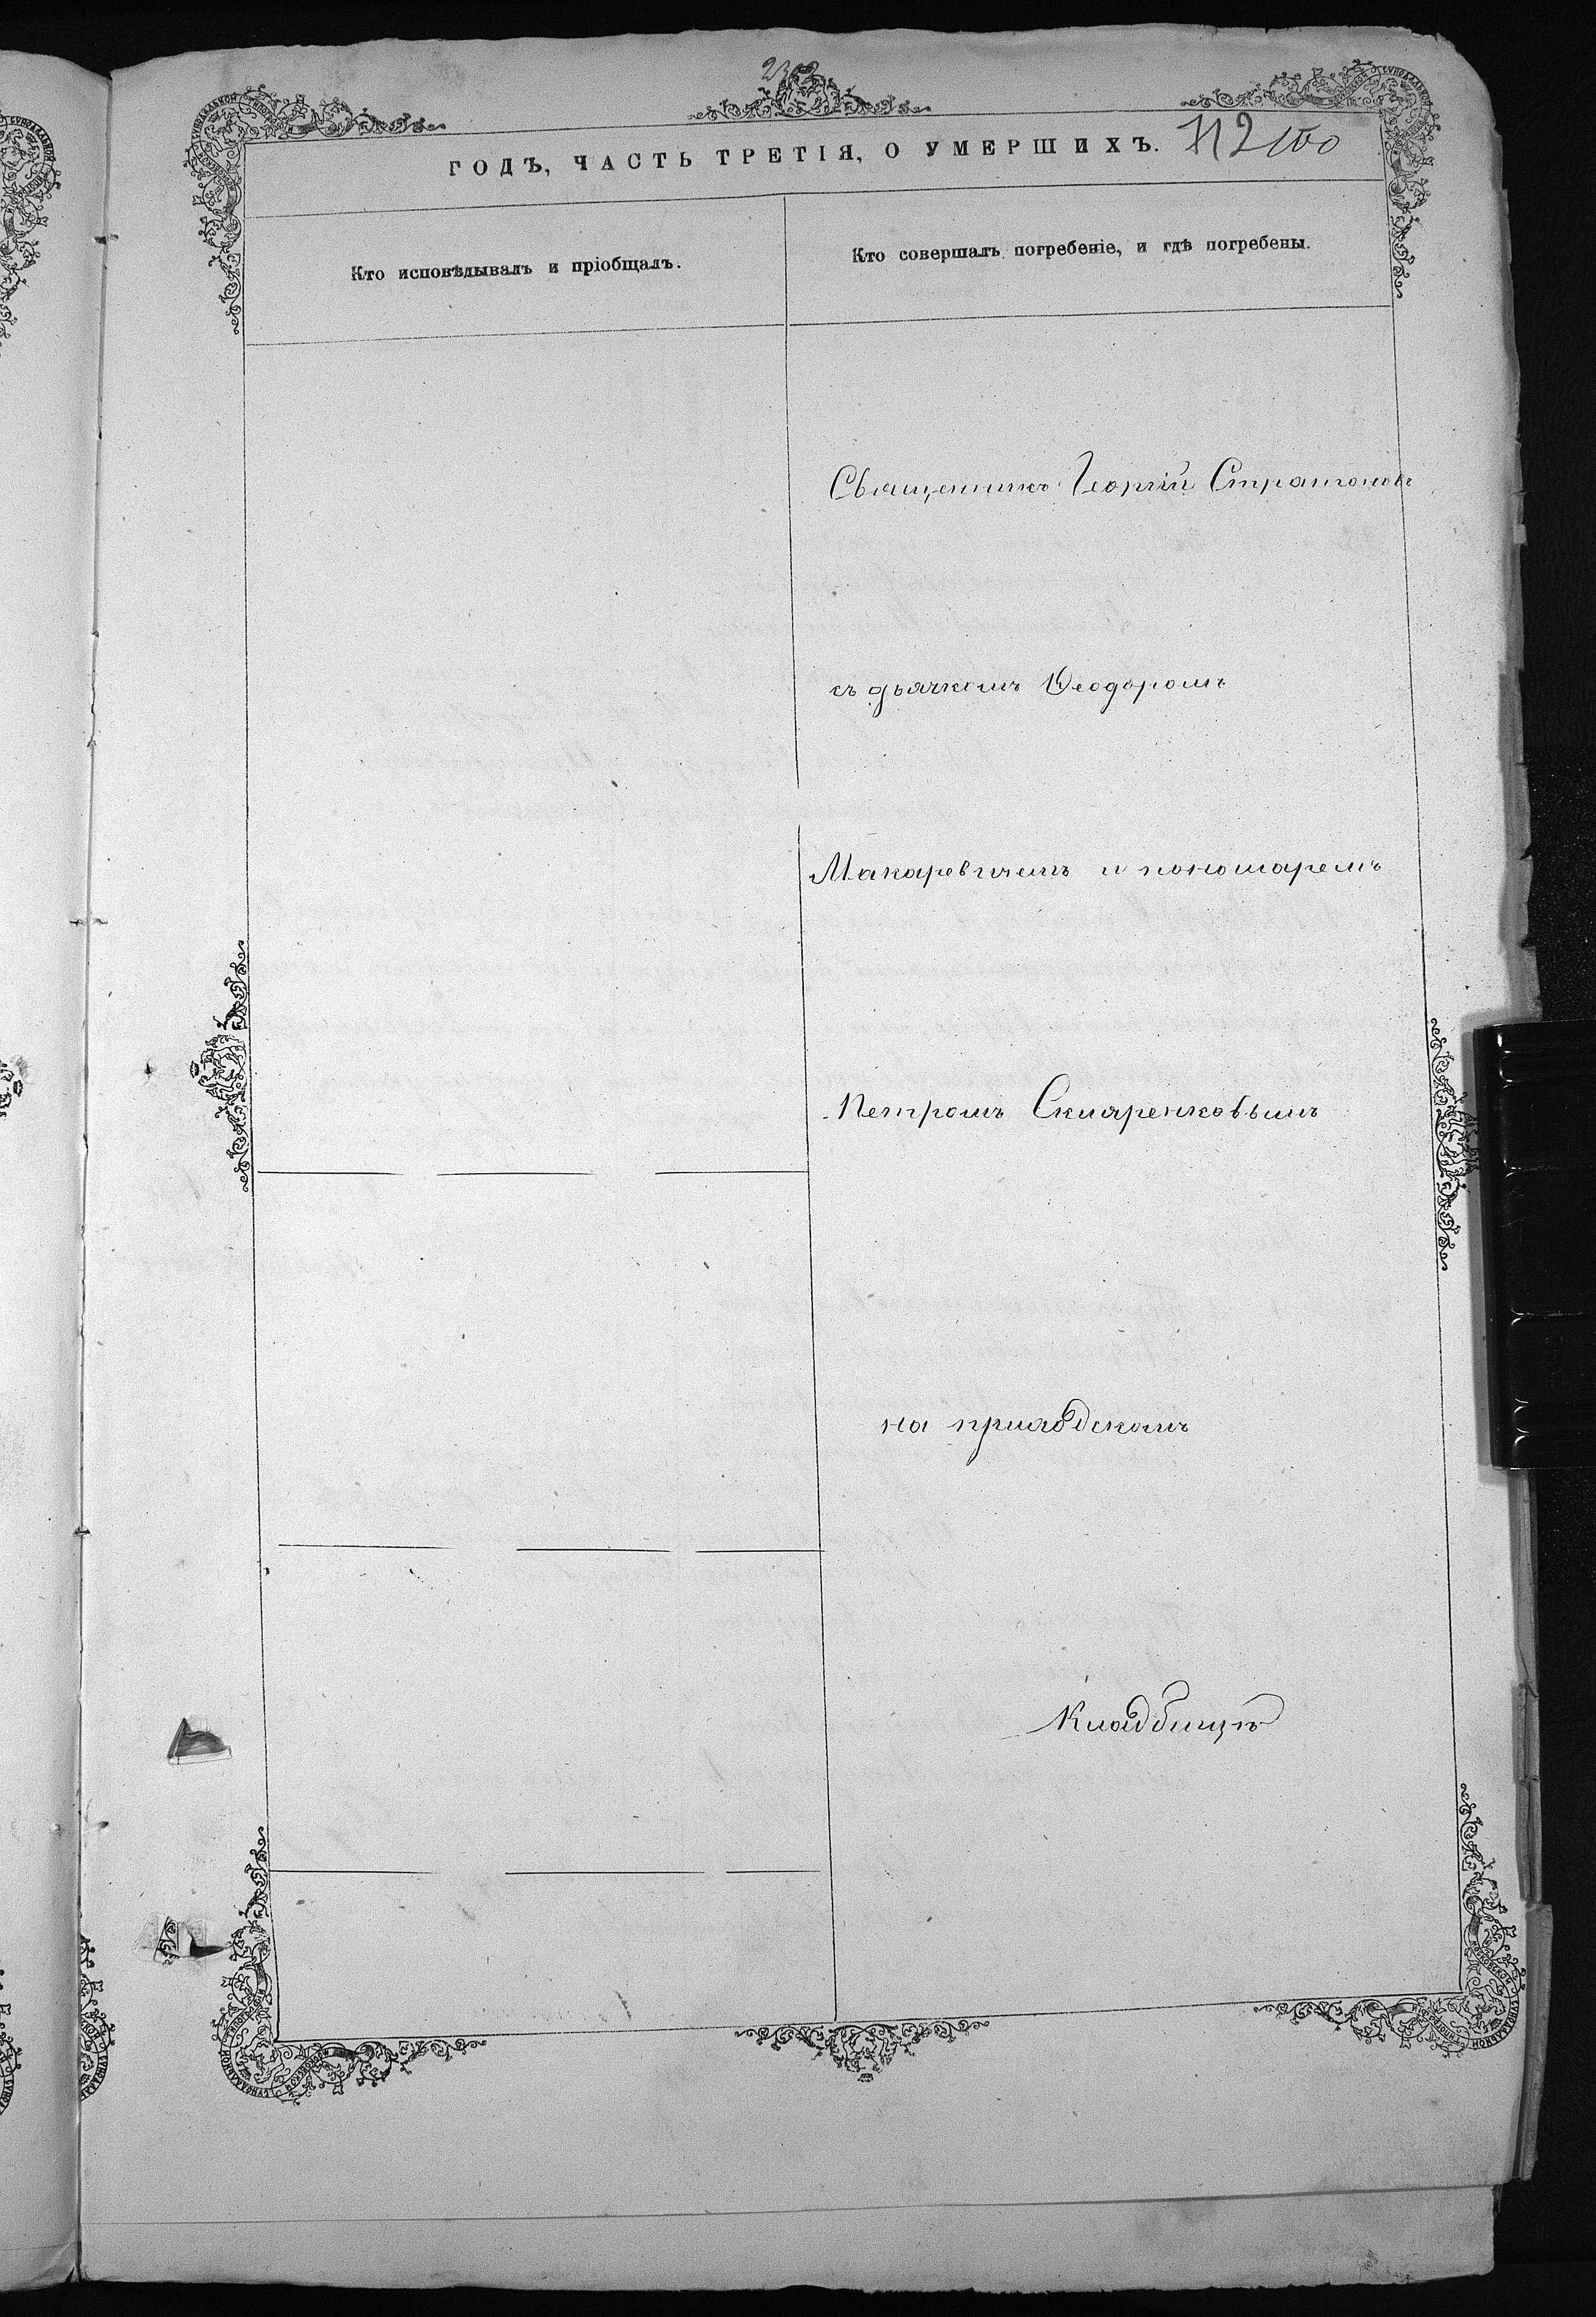 ГОДЪ, ЧАСТЬ ТРЕТІЯ, О УМЕРШИХЪ.
Кто исповѣдывалъ и пріобщалъ.
Кто совершалъ погребеніе, и гдѣ погребены.
Священникъ Георгій Стратоновъ
съ дьячкомъ Ѳеодоромъ
Макаревичемъ и пономаремъ
Петромъ Скляренковымъ
на приходскомъ
Кладбищѣ